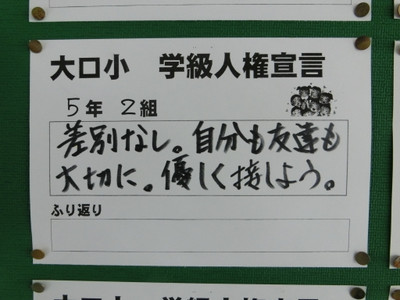 大口小　学級人権宣言
5年 2組
差別なし。自分も友達も
大切に。優しく接しよう。
ふり返り